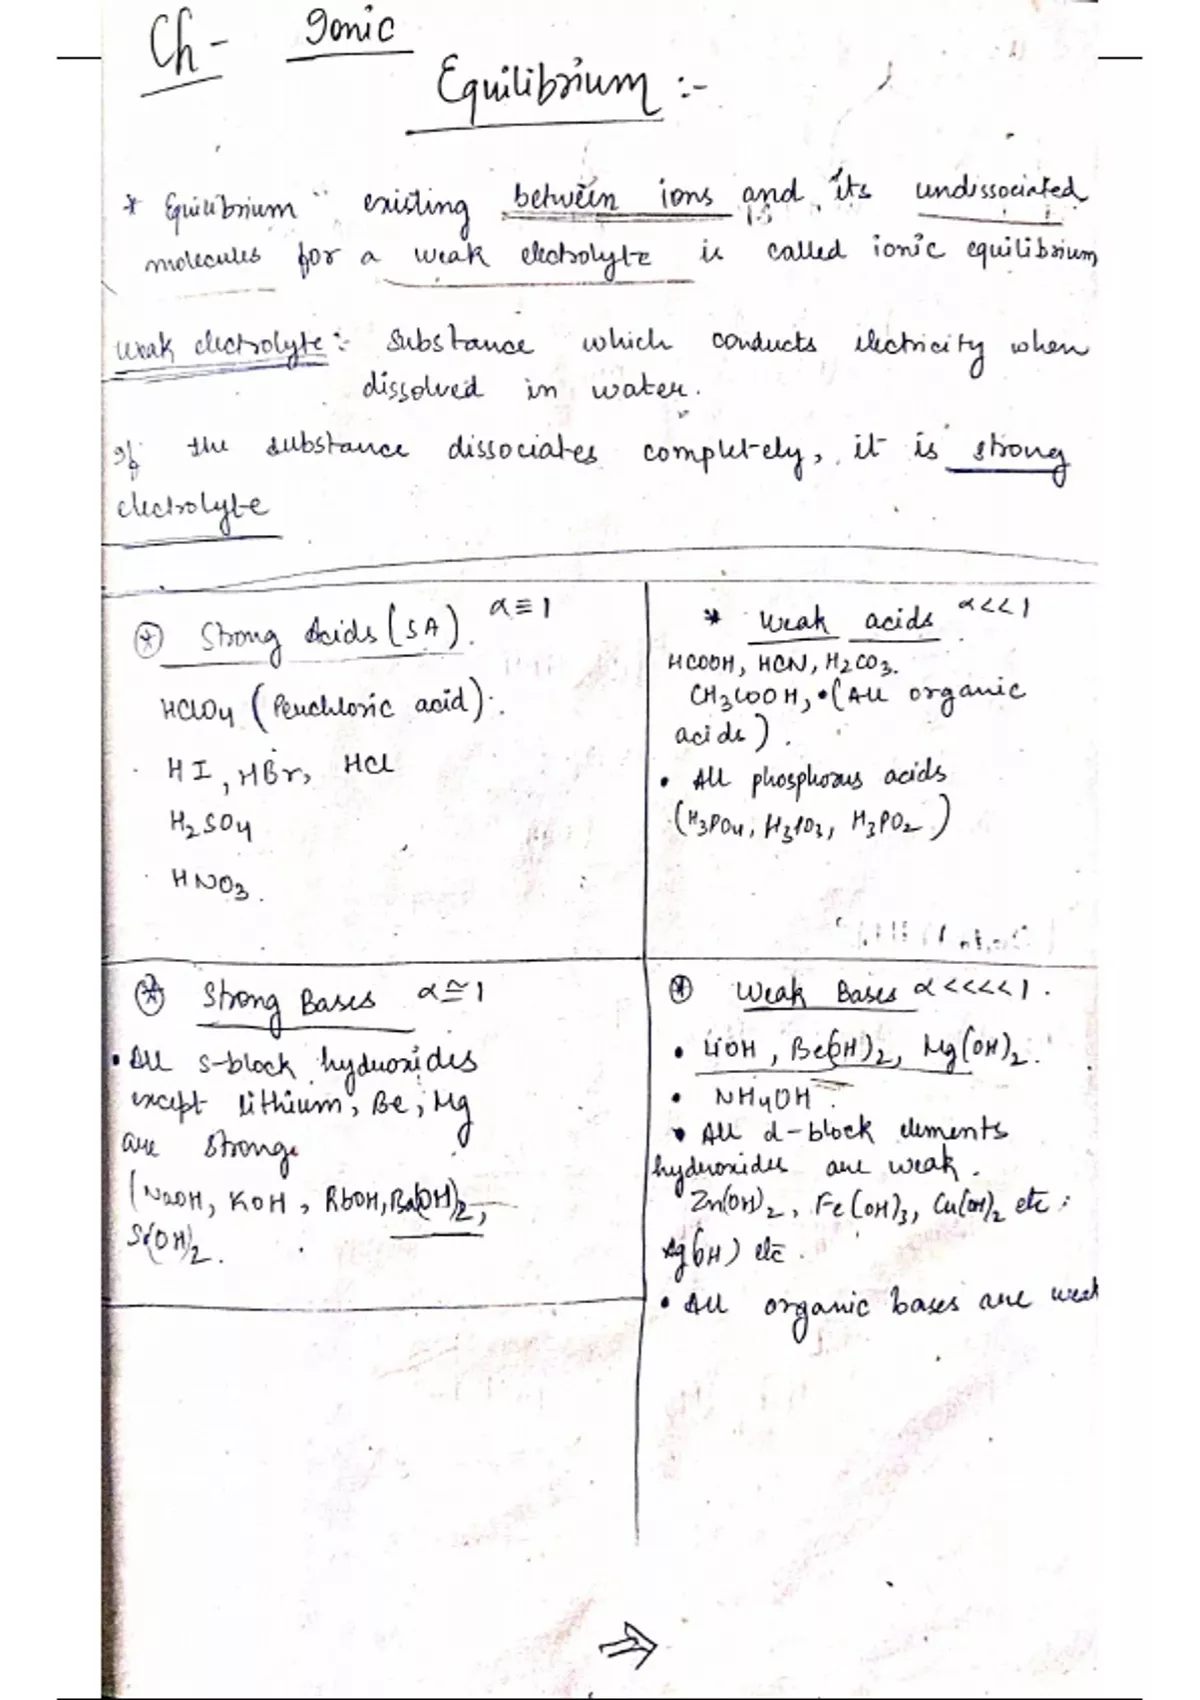 Ch- Ionic
Equilibrium :-
* Equilibrium existing between ions and its undissociated
molecules for a weak electrolyte is called ionic equilibrium
Weak electrolyte :- Substance which conducts electricity when
dissolved in water.
If the substance dissociates completely, it is strong
electrolyte
* Strong Acids (SA). α ≡ 1
HClO4 (Perchloric acid).
HI, HBr, HCl
H2SO4
HNO3.
* Weak acids α<<1
HCOOH, HCN, H2CO3.
CH3COOH, •(All organic
acids).
• All phosphorus acids
(H3PO4, H3PO3, H3PO2)
* Strong Bases α≅1
• All s-block hydroxides
except lithium, Be, Mg
are strong.
(NaOH, KOH, RbOH, Ba(OH)2,
Sr(OH)2.
* Weak Bases α<<<<1.
• LiOH, Be(OH)2, Mg(OH)2.
• NH4OH.
• All d-block elements
hydroxides are weak.
Zn(OH)2, Fe(OH)3, Cu(OH)2 etc
Ag(OH) etc.
• All organic bases are weak
⇒